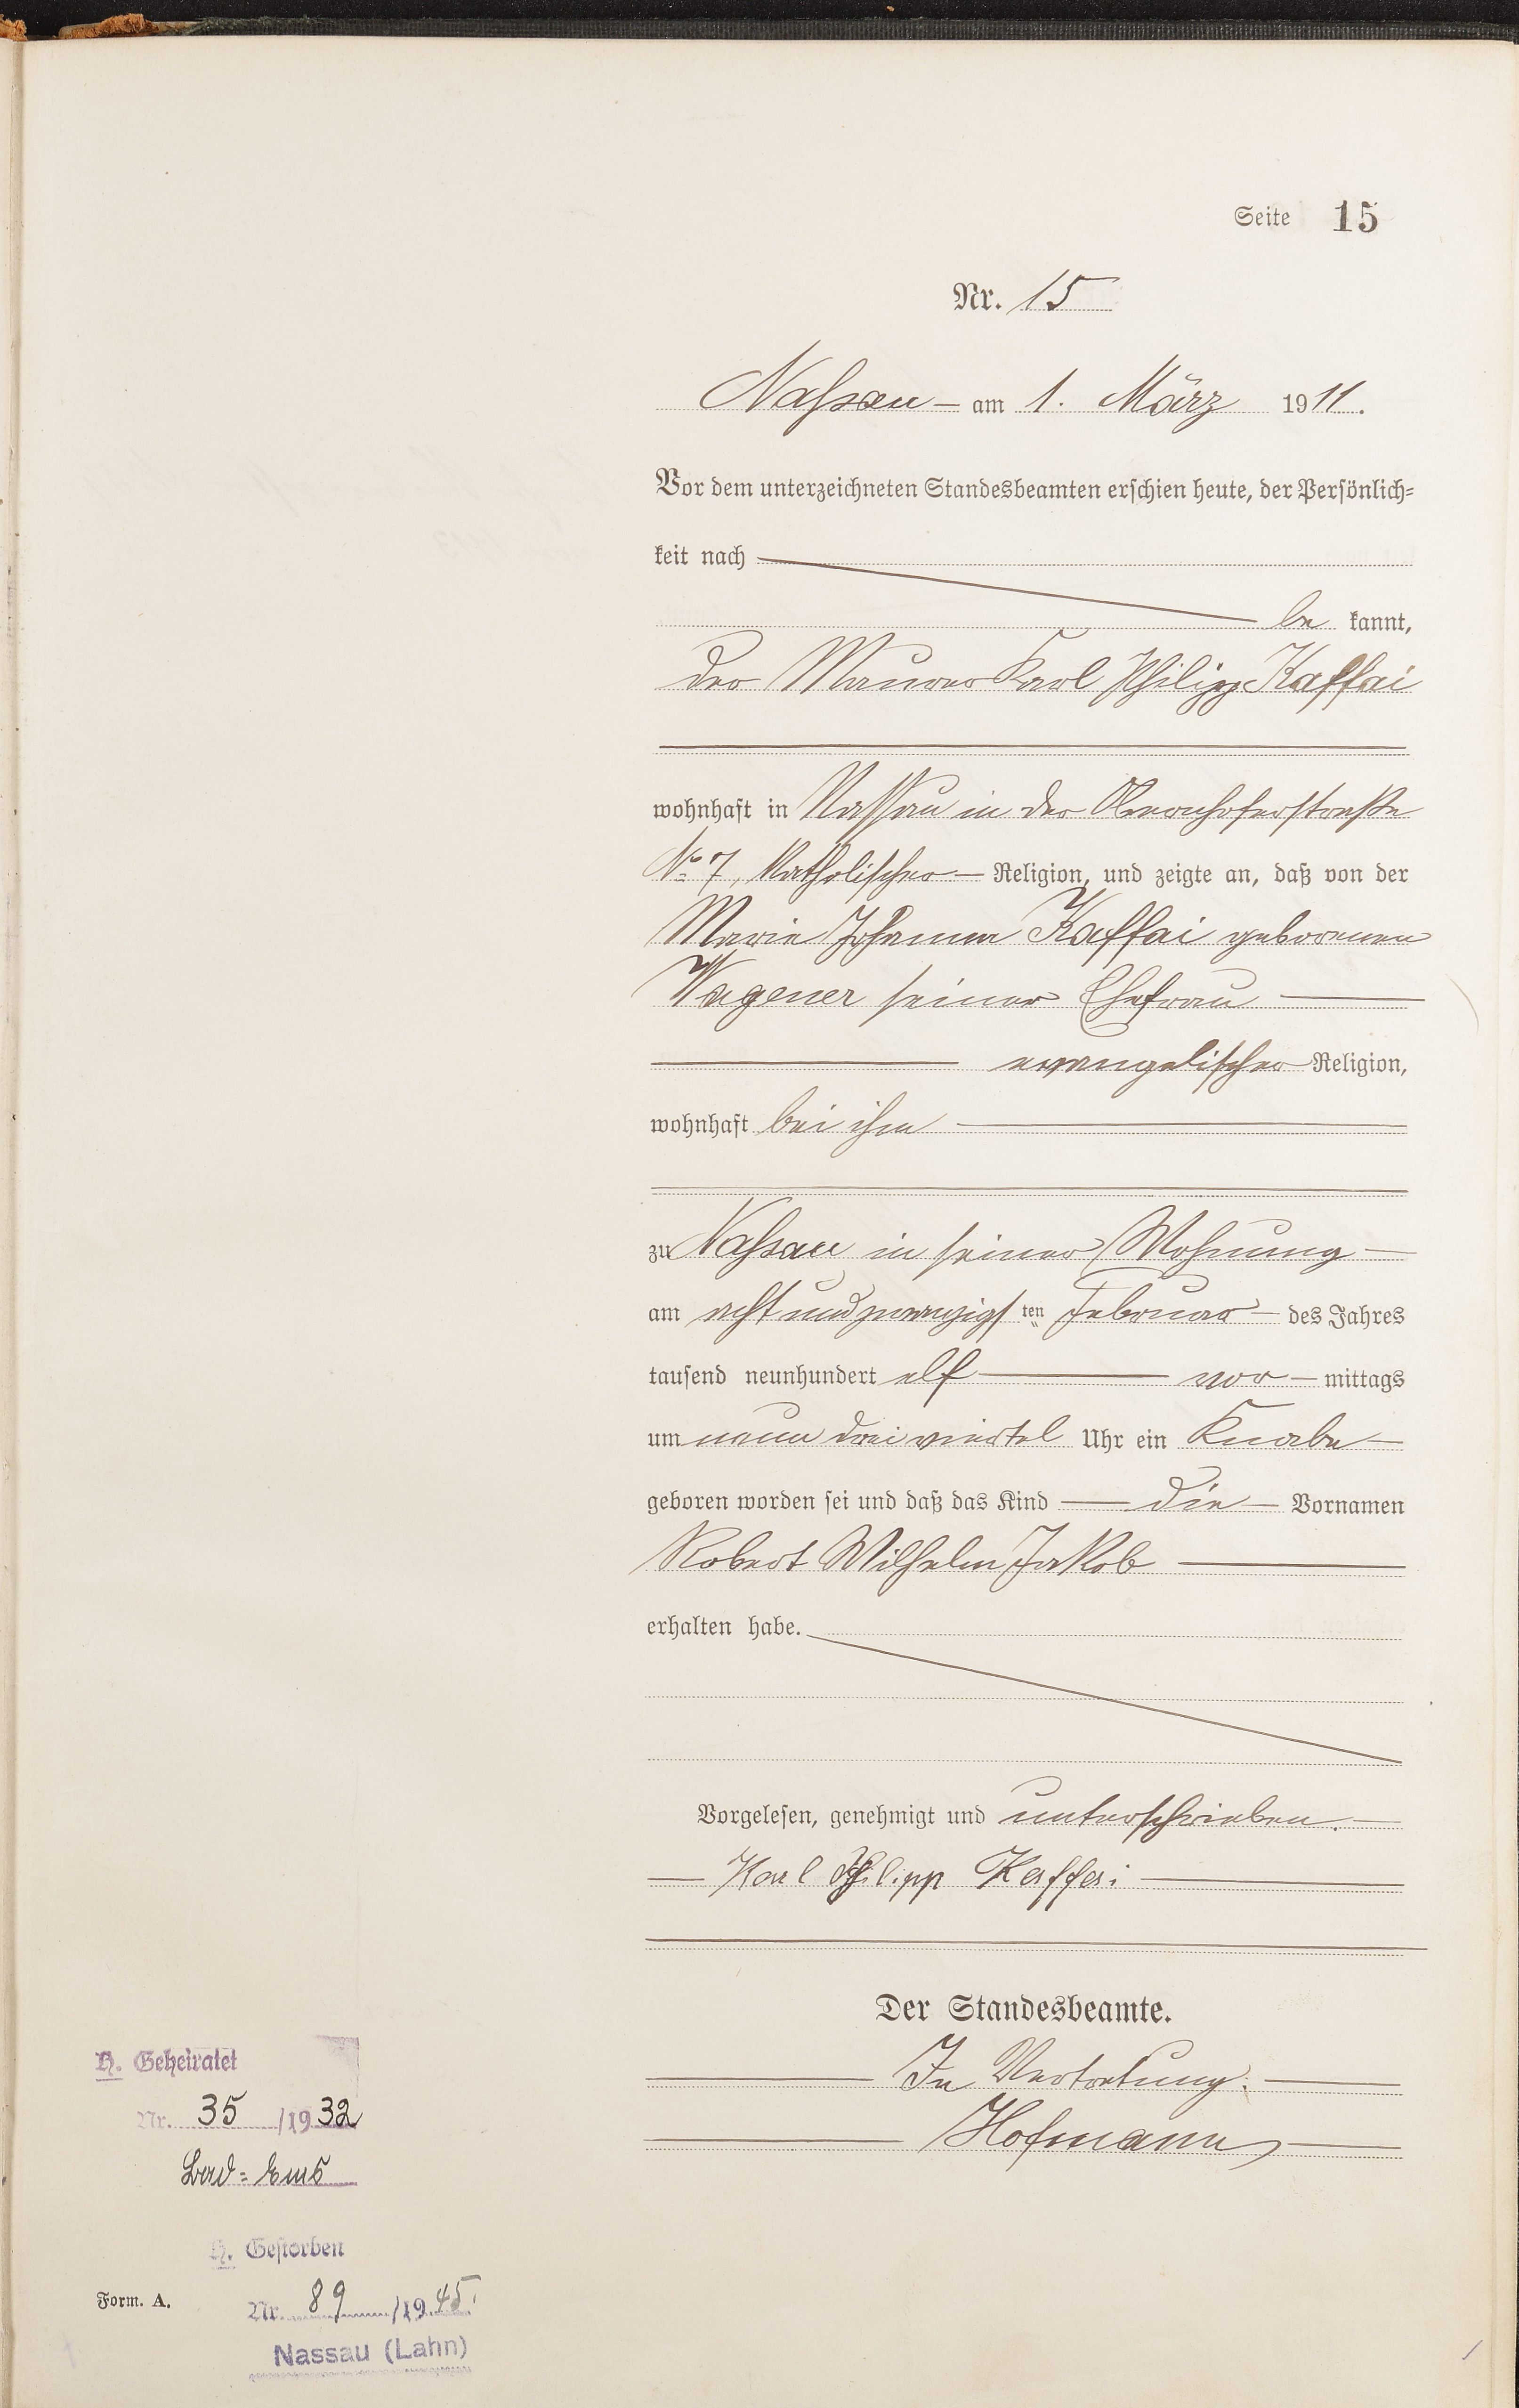 Seite 15
Nr. 15
Nassau am 1. März 1911.
Vor dem unterzeichneten Standesbeamten erschien heute, der Persönlich-
keit nach
be kannt,
der Maurer Karl Philipp Kaffai
wohnhaft in Nassau in der Obernhoferstraße
No 7, katholischer Religion, und zeigte an, daß von der
Marie Johanna Kaffai geborenen
Wagener seiner Ehefrau
evangelischer Religion,
wohnhaft bei ihm
zu Nassau in seiner Wohnung
am acht und zwanzigsten Februar des Jahres
tausend neunhundert elf vor mittags
um neun drei viertel Uhr ein Knabe
geboren worden sei und daß das Kind die Vornamen
Robert Wilhelm Jakob
erhalten habe.
Vorgelesen, genehmigt und unterschrieben.
Karl Philipp Kaffai
Der Standesbeamte.
In Vertretung.
Hofmann
H. Geheiratet
Nr. 35 /1932
Bad-Ems
H. Gestorben
Form. A.
Nr. 89 /1945.
Nassau (Lahn)